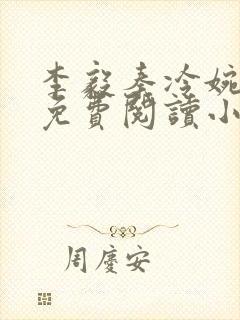 李毅秦冷婉
免費閱讀小
周慶安